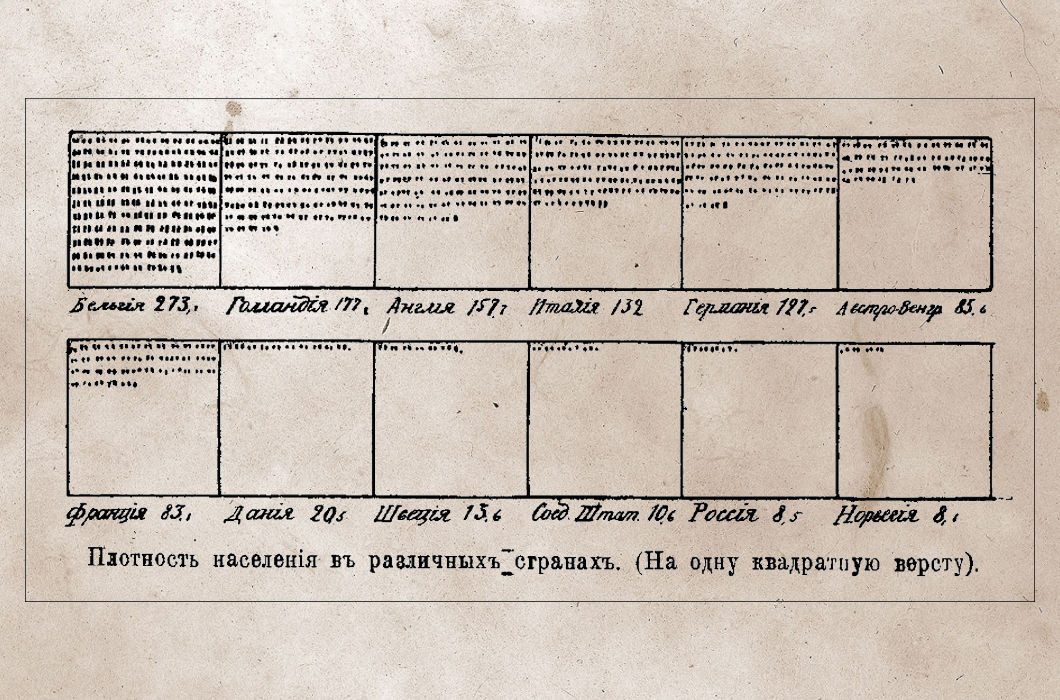 Бельгія 273,1 Голландія 177,1 Англія 157,7 Италія 132 Германія 127,5 Австро-Венгр. 85,6
Франція 83,1 Данія 20,5 Швеція 13,6 Соед. Штат. 10,6 Россія 8,5 Норвегія 8,1
Плотность населенія въ различныхъ странахъ. (На одну квадратную версту).